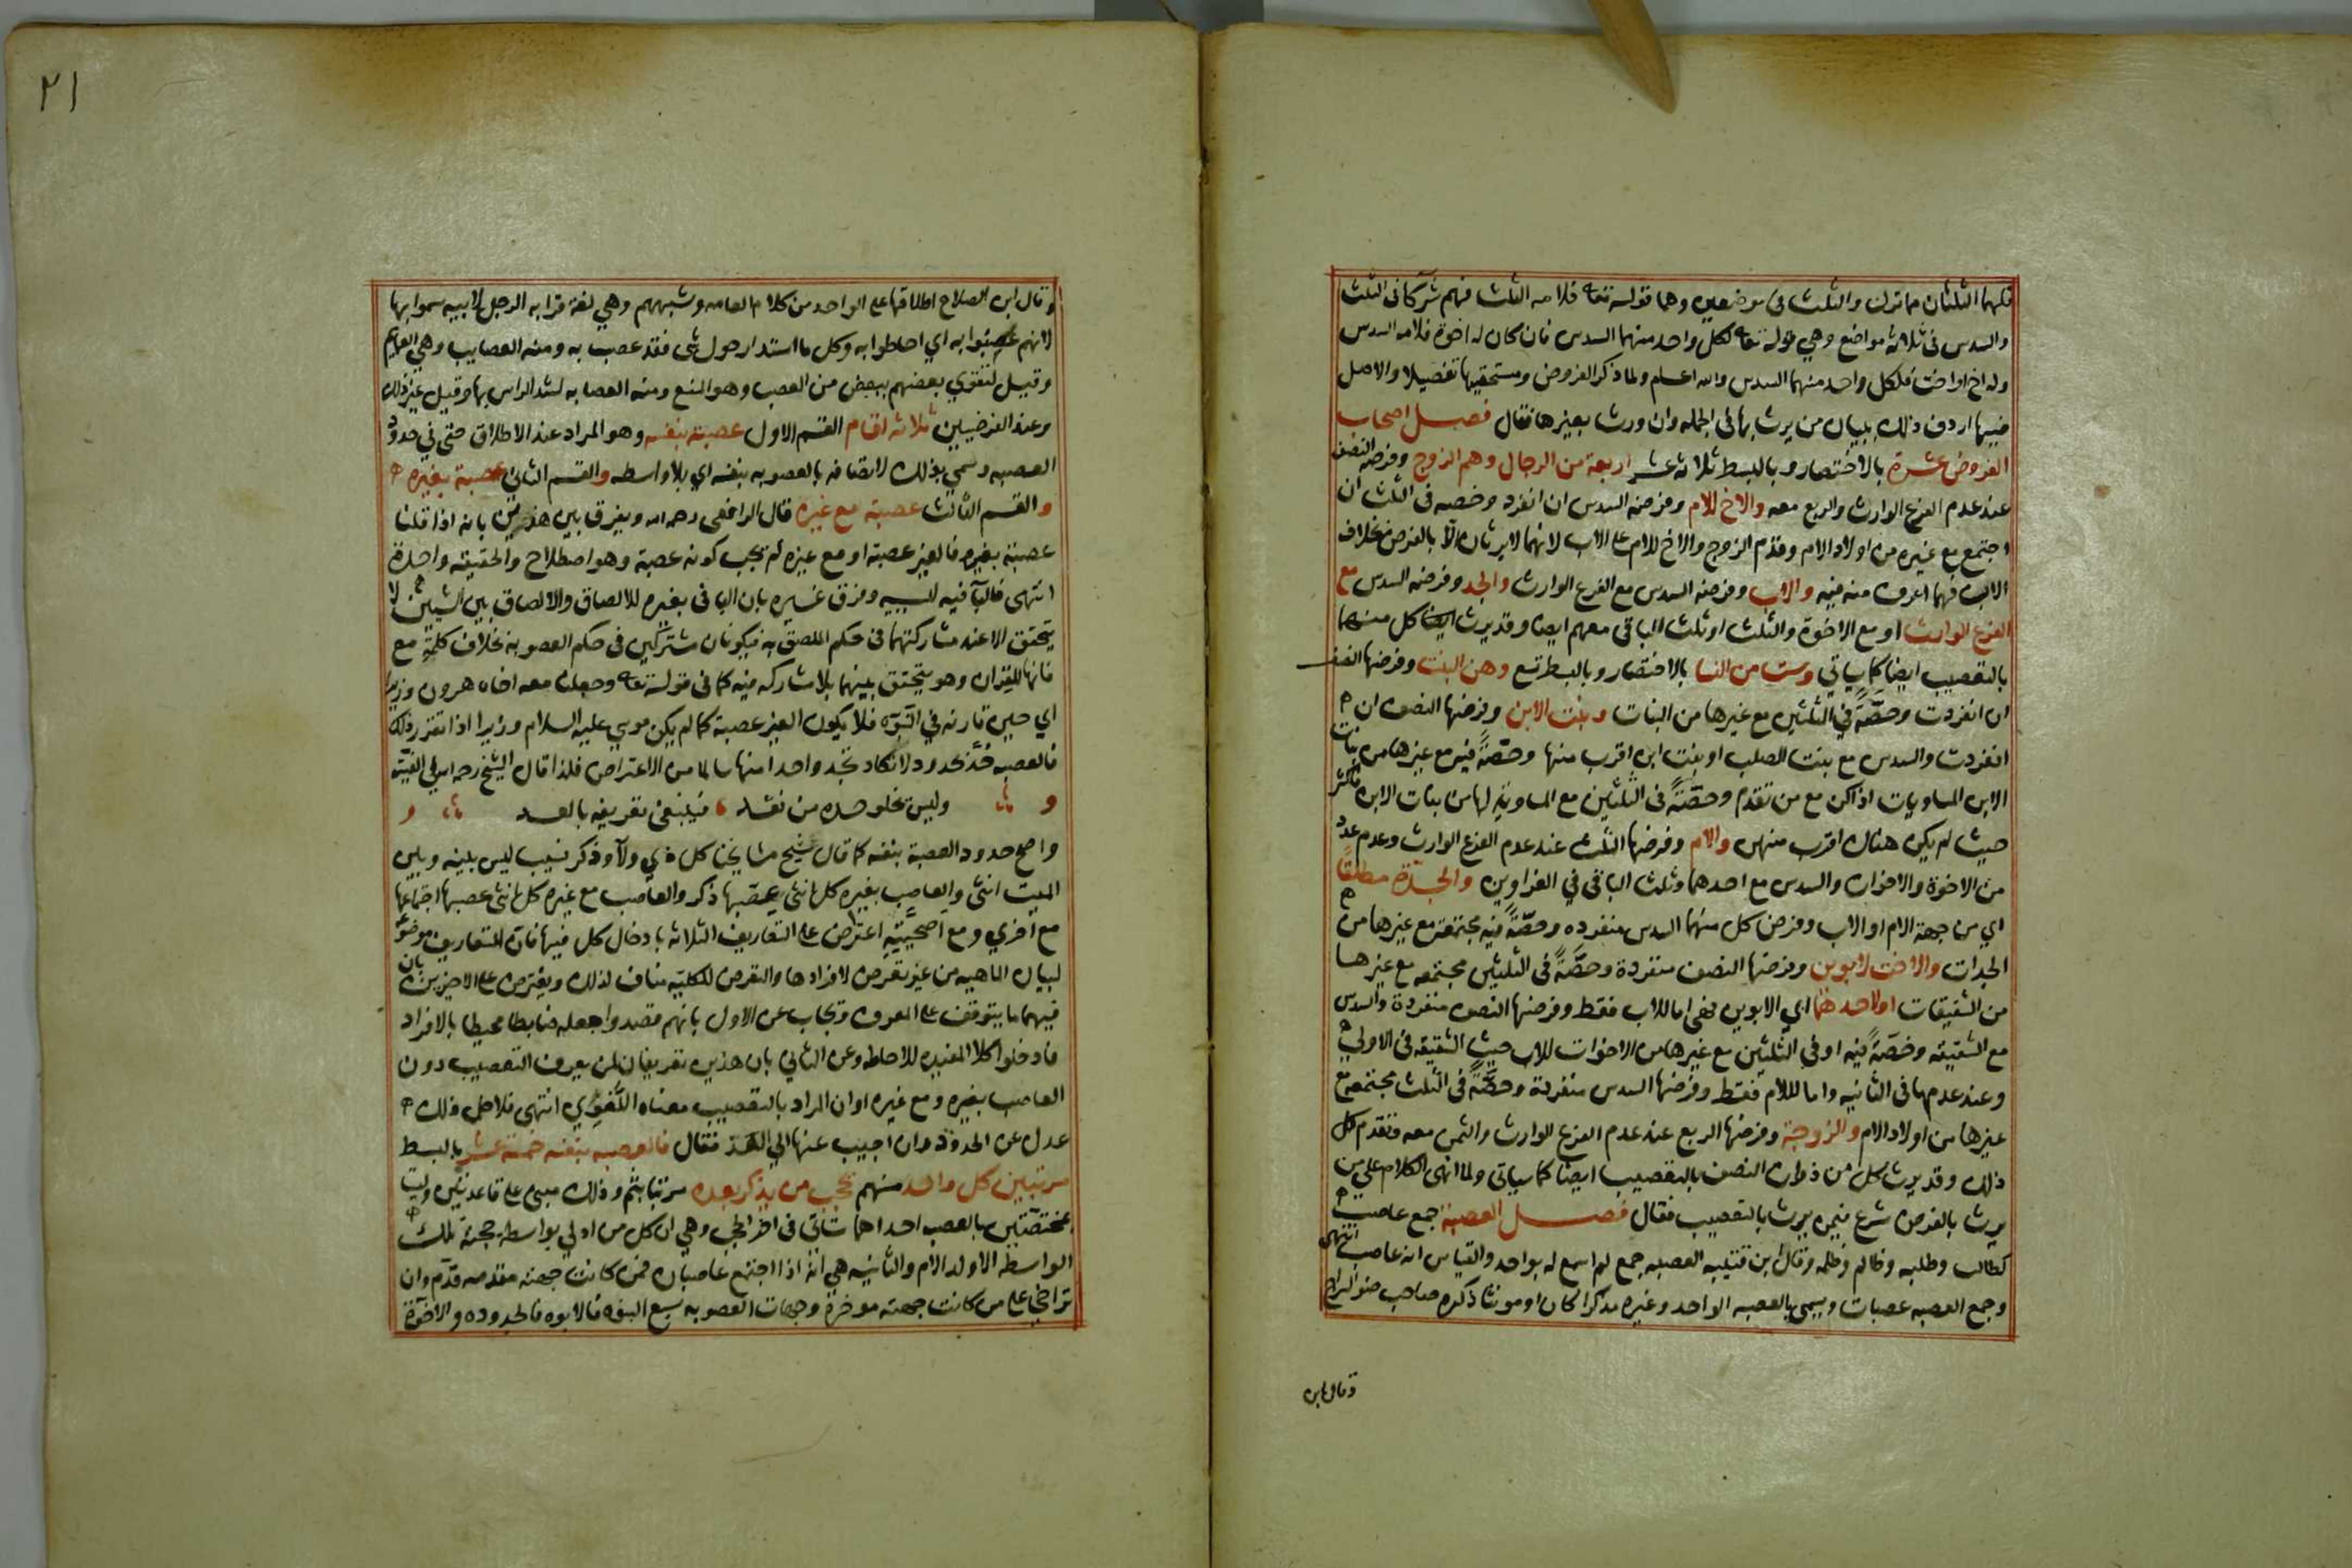 فلهما الثلثان مما ترك والثلث في موضعين وهما قوله تعا فلامه الثلث فهم شركا في الثلث
والسدس في ثلاثة مواضع وهي قوله تعا لكل واحد منهما السدس فان كان له اخوة فلامه السدس
وله اخ او اخت فلكل واحد منهما السدس والله اعلم ولما ذكر الفروض ومستحقيها تفصيلا والاصل
فيها اردف ذلك ببيان من يرث بها في الجمله وان ورث بغيرها فقال فصل اصحاب
الفروض عشرة بالاختصار وبالبسط ثلاثة عشر اربعة من الرجال وهم الزوج وفرضه النصف
عند عدم الفرع الوارث والربع معه والاخ للام وفرضه السدس ان انفرد وحصه في الثلث ان
اجتمع مع غيره من اولاد الام وقدم الزوج والاخ للام على الاب لانهما لا يرثان الا بالفرض بخلاف
الاب فهما اعرف منه فيه والاب وفرضه السدس مع الفرع الوارث والجد وفرضه السدس مع
الفرع الوارث او مع الاخوة والثلث او ثلث الباقي معهم ايضا وقد يرث ايضا كل منهما
بالتعصيب ايضا كما ياتي وست من النسا بالاختصار وبالبسط تسع وهن البنت وفرضها النصف
ان انفردت وحصّةً في الثلثين مع غيرها من البنات وبنت الابن وفرضها النصف ان
انفردت والسدس مع بنت الصلب او بنت ابن اقرب منها وحصّةً فيه مع غيرها من بنات
الابن المساويات اذا كن مع من تقدم وحصّةً في الثلثين مع المساوية لها من بنات الابن فاكثر
حيث لم يكن هناك اقرب منهن والام وفرضها الثلث عند عدم الفرع الوارث وعدم عدد
من الاخوة والاخوات والسدس مع احدهما وثلث الباقي في الغراوين والجدة مطلقًا
اي من جهة الام او الاب وفرض كل منهما السدس منفرده وحصّةً فيه مجتمعة مع غيرها من
الجدات والاخت لابوين وفرضها النصف منفردة وحصّةً في الثلثين مجتمعه مع غيرها
من الشقيقات او لاحدهما اي الابوين فهي اما للاب فقط وفرضها النصف منفردة والسدس
مع الشقيقه وحصّةً فيه او في الثلثين مع غيرها من الاخوات للاب حيث الشقيقه في الاولي
وعند عدمها في الثانيه واما للام فقط وفرضها السدس منفردة وحصّةً في الثلث مجتمعه مع
غيرها من اولاد الام والزوجة وفرضها الربع عند عدم الفرع الوارث والثمن معه فتقدم كل
ذلك وقد يرث كل من ذوات النصف بالتعصيب ايضا كما سياتي ولما انهى الكلام على من
يرث بالفرض شرع فيمن يرث بالتعصيب فقال فصل العصبة جمع عاصب
كطالب وطلبه وظالم وظلمه وقال ابن قتيبه العصبه جمع لم اسمع له بواحد والقياس انه عاصب انتهى
وجمع العصبه عصبات ويسمى بالعصبه الواحد وغيره مذكرا كان او مونثا ذكره صاحب ضوالسراج
وقال ابن
٢١
وقال ابن الصلاح اطلاقها على الواحد من كلام العامه وشبههم وهي لغة قرابه الرجل لابيه سموا بها
لانهم عصبوا به اي احاطوا به وكل ما استدار حول شي فقد عصب به ومنه العصايب وهي العمايم
وقيل لتقوي بعضهم ببعض من العصب وهو المنع ومنه العصابه لشد الراس بها وقيل غير ذلك
وعند الفرضيين ثلاثه اقسام القسم الاول عصبة بنفسه وهو المراد عند الاطلاق حتى في حدود
العصبه وسمي بذلك لاتصافه بالعصوبه بنفسه اي بلا واسطه والقسم الثاني عصبة بغيره
والقسم الثالث عصبة مع غيره قال الرافعي رحمه الله ويفرق بين هذين بانه اذا قلنا
عصبة بغيره فالغير عصبة او مع غيره لم يجب كونه عصبة وهو اصطلاح والحقيقه واحدة
انتهى فالبآ فيه للسببيه وفرق غيره بان البا في بغيره للالصاق والالصاق بين الشيئين لا
يتحقق الا عند مشاركتهما في حكم الملصق به فيكونان مشتركين في حكم العصوبه بخلاف كلمة مع
فانها للقران وهو يتحقق بينهما بلا مشاركه فيه كما في قوله تعا وجعلنا معه اخاه هرون وزيرا
اي حين قارنه في النبوّه فلا يكون الغير عصبة كما لم يكن موسي عليه السلام وزيرا اذا تقرر ذلك
فالعصبه حُدّ بحدود لا تكاد تجد واحدا منها سالما من الاعتراض فلذا قال الشيخ رحمه الله في الفيّته
وليس يخلو حده من نقد فينبغي تعريفه بالعد
واصح حدود العصبة بنفسه كما قال شيخ مشايخنا كل ذي ولآ وذكر نسيب ليس بينه وبين
الميت انثى والعاصب بغيره كل انثى عصّبها ذكر والعاصب مع غيره كل انثى عصبها اجتماعها
مع اخري ومع اصحّيته اعترض على التعاريف الثلاثه بادخال كل فيها فان التعاريف موضوع
لبيان الماهيه من غير تعرض لافرادها والتعرض للكليّه مناف لذلك ويعترض على الاخيرين بان
فيهما ما يتوقف على المعرف وتجاب عن الاول بانهم قصدوا جعله ضابطا محيطا بالافراد
فادخلوا كلا المفيده للاحاطه وعن الثاني بان هذين تعريفان لمن يعرف التعصيب دون
العاصب بغيره ومع غيره او ان المراد بالتعصيب معناه اللّغوي انتهى فلاجل ذلك
عدل عن الحدود وان اجيب عنها الي العَدّ فقال فالعصبه بنفسه خمسة عشر بالبسط
مرتبين كل واحد منهم يحجب من يذكر بعده مرتبا بثم وذلك مبني على قاعدتين وليستا
مختصّتين بالعصب احداهما تاتي في اخر الحجب وهي ان كل من ادلي بواسطة حجبته تلك
الواسطة الا ولد الام والثانيه هي انه اذا اجتمع عاصبان فمن كانت جهته مقدمه قدّم وان
تراخى على من كانت جهته موخرة وجهات العصوبه سبع البنوه فالابوه فالجدوده والاخوّة